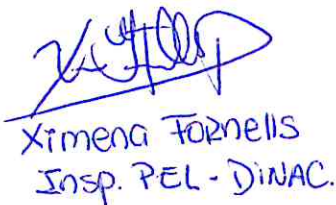 Ximena Fornells
Insp. PEL - DINAC.